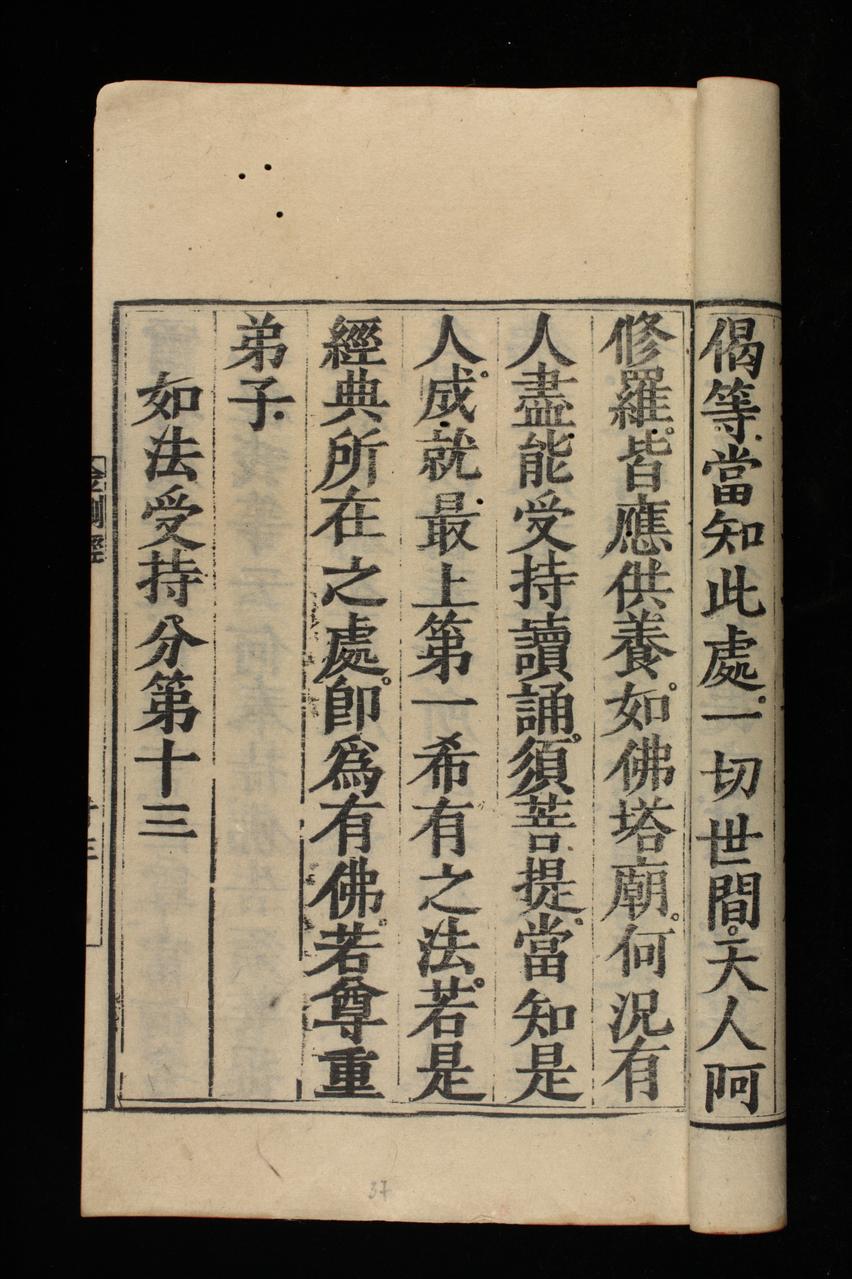 偈等當知此處。一切世間。天人阿
修羅。皆應供養。如佛塔廟。何況有
人盡能受持讀誦。須菩提。當知是
人。成就最上第一希有之法。若是
經典所在之處。即爲有佛。若尊重
弟子
如法受持分第十三
金剛經
37